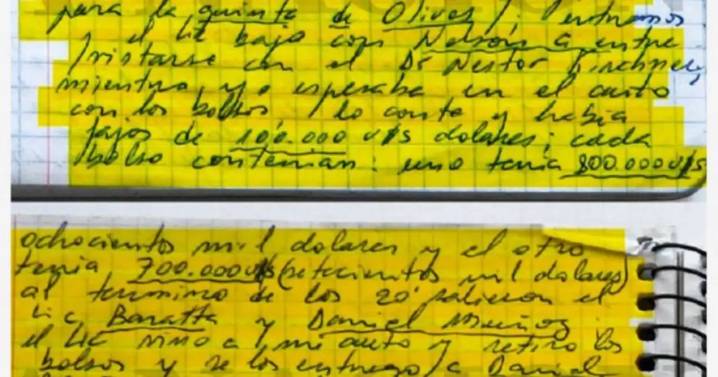 para la quinta de Olivos /. entramos
y el Lic bajo con Nelson a entre
/vistarse con el Dr Nestor Kirchner,
mientras, yo esperaba en el auto
con los bolsos / lo conte y habia
fajos de 100.000 u/s dolares; cada
/bolso contenian: uno tenia 800.000 u/s
ochocientos mil dolares y el otro
tenia 700.000 u/s (setecientos mil dolares)
al termino de los 20' salieron el
Lic Baratta y Daniel Muñoz
el Lic vino a mi auto y retiro los
bolsos y se los entrego a Daniel